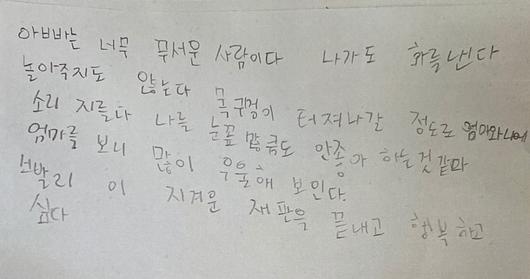 아빠는 너무 무서운 사람이다 나가도 화를낸다
놀아주지도 않는다
소리 지른다 목구멍이 터져나갈 정도로 엄마와나에
나를 눈꼽 만큼도 안종아 하는것 같다
엄마를 보니 많이 우울해 보인다.
빨리 이 지겨운 재판을 끝내고 행복하고
싶다